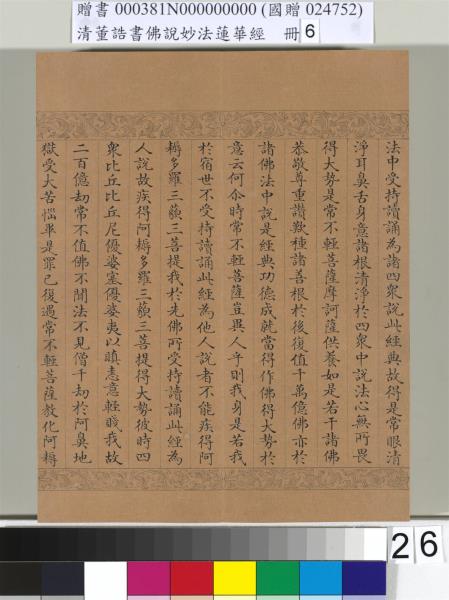 贈書 000381N000000000 (國贈 024752)
清董誥書佛說妙法蓮華經 冊6
法中受持讀誦為諸四眾說此經典故得是常眼清
淨耳鼻舌身意諸根清淨於四眾中說法心無所畏
得大勢是常不輕菩薩摩訶薩供養如是若干諸佛
恭敬尊重讚歎種諸善根於後復值千萬億佛亦於
諸佛法中說是經典功德成就當得作佛得大勢於
意云何尒時常不輕菩薩豈異人乎則我身是若我
於宿世不受持讀誦此經為他人說者不能疾得阿
耨多羅三藐三菩提我於先佛所受持讀誦此經為
人說故疾得阿耨多羅三藐三菩提得大勢彼時四
眾比丘比丘尼優婆塞優婆夷以瞋恚意輕賤我故
二百億劫常不值佛不聞法不見僧千劫於阿鼻地
獄受大苦惱畢是罪已復遇常不輕菩薩教化阿耨
26